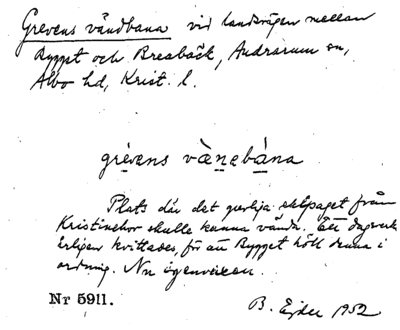 Grevens vändbana vid landsvägen mellan
Bygget och Breabäck, Andrarum sn,
Albo hd, Krist. l.
grèvens vä̀nebána
Plats där det grevliga ekipaget från
Kristinehov skulle kunna vända. Ett dagsverk
årligen kvittades, för att Bygget höll denna i
ordning. Nu igenvuxen.
Nr 5911.
B. Ejder 1952